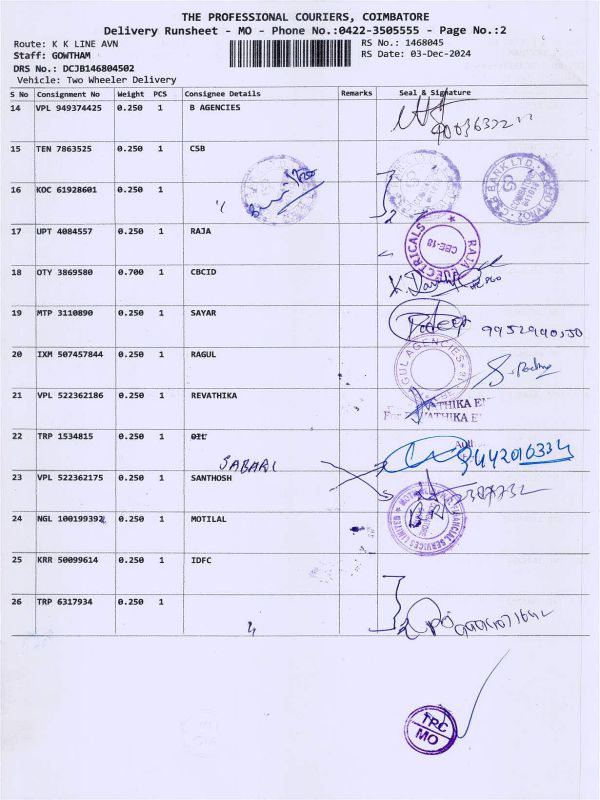 THE PROFESSIONAL COURIERS, COIMBATORE
Delivery Runsheet - MO - Phone No.:0422-3505555 - Page No.:2
Route: K K LINE AVN
RS No.: 1468045
Staff: GOWTHAM
RS Date: 03-Dec-2024
DRS No.: DCJB146804502
Vehicle: Two Wheeler Delivery
S No Consignment No Weight PCS Consignee Details Remarks Seal & Signature
14 VPL 949374425 0.250 1 B AGENCIES
15 TEN 7863525 0.250 1 CSB
16 KOC 61928601 0.250 1
BANK LTD
17 UPT 4084557 0.250 1 RAJA
RAJA ELECTRICALS
CBE-18
18 OTY 3869580 0.700 1 CBCID
19 MTP 3110890 0.250 1 SAYAR
20 IXM 507457844 0.250 1 RAGUL
GUL AGENCIES
21 VPL 522362186 0.250 1 REVATHIKA
22 TRP 1534815 0.250 1
SABARI
23 VPL 522362175 0.250 1 SANTHOSH
24 NGL 100199392 0.250 1 MOTILAL
FINANCIAL SERVICES LIMITED
25 KRR 50099614 0.250 1 IDFC
26 TRP 6317934 0.250 1
TRC
MO